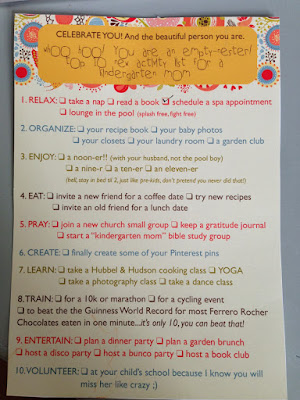 CELEBRATE YOU! And the beautiful person you are.
Whoo hoo! You are an empty-nester!
Top 10 new activity list for a
kindergarten mom
1. RELAX: ❑ take a nap ❑ read a book ☑ schedule a spa appointment
❑ lounge in the pool (splash free, fight free)
2. ORGANIZE: ❑ your recipe book ❑ your baby photos
❑ your closets ❑ your laundry room ❑ a garden club
3. ENJOY: ❑ a noon-er!! (with your husband, not the pool boy)
❑ a nine-r ❑ a ten-er ❑ an eleven-er
(hell, stay in bed til 2, just like pre-kids, don't pretend you never did that!)
4. EAT: ❑ invite a new friend for a coffee date ❑ try new recipes
❑ invite an old friend for a lunch date
5. PRAY: ❑ join a new church small group ❑ keep a gratitude journal
❑ start a "kindergarten mom" bible study group
6. CREATE: ❑ finally create some of your Pinterest pins
7. LEARN: ❑ take a Hubbel & Hudson cooking class ❑ YOGA
❑ take a photography class ❑ take a dance class
8. TRAIN: ❑ for a 10k or marathon ❑ for a cycling event
❑ to beat the the Guinness World Record for most Ferrero Rocher
Chocolates eaten in one minute...it's only 10, you can beat that!
9. ENTERTAIN: ❑ plan a dinner party ❑ plan a garden brunch
❑ host a disco party ❑ host a bunco party ❑ host a book club
10. VOLUNTEER: ❑ at your child's school because I know you will
miss her like crazy ;)